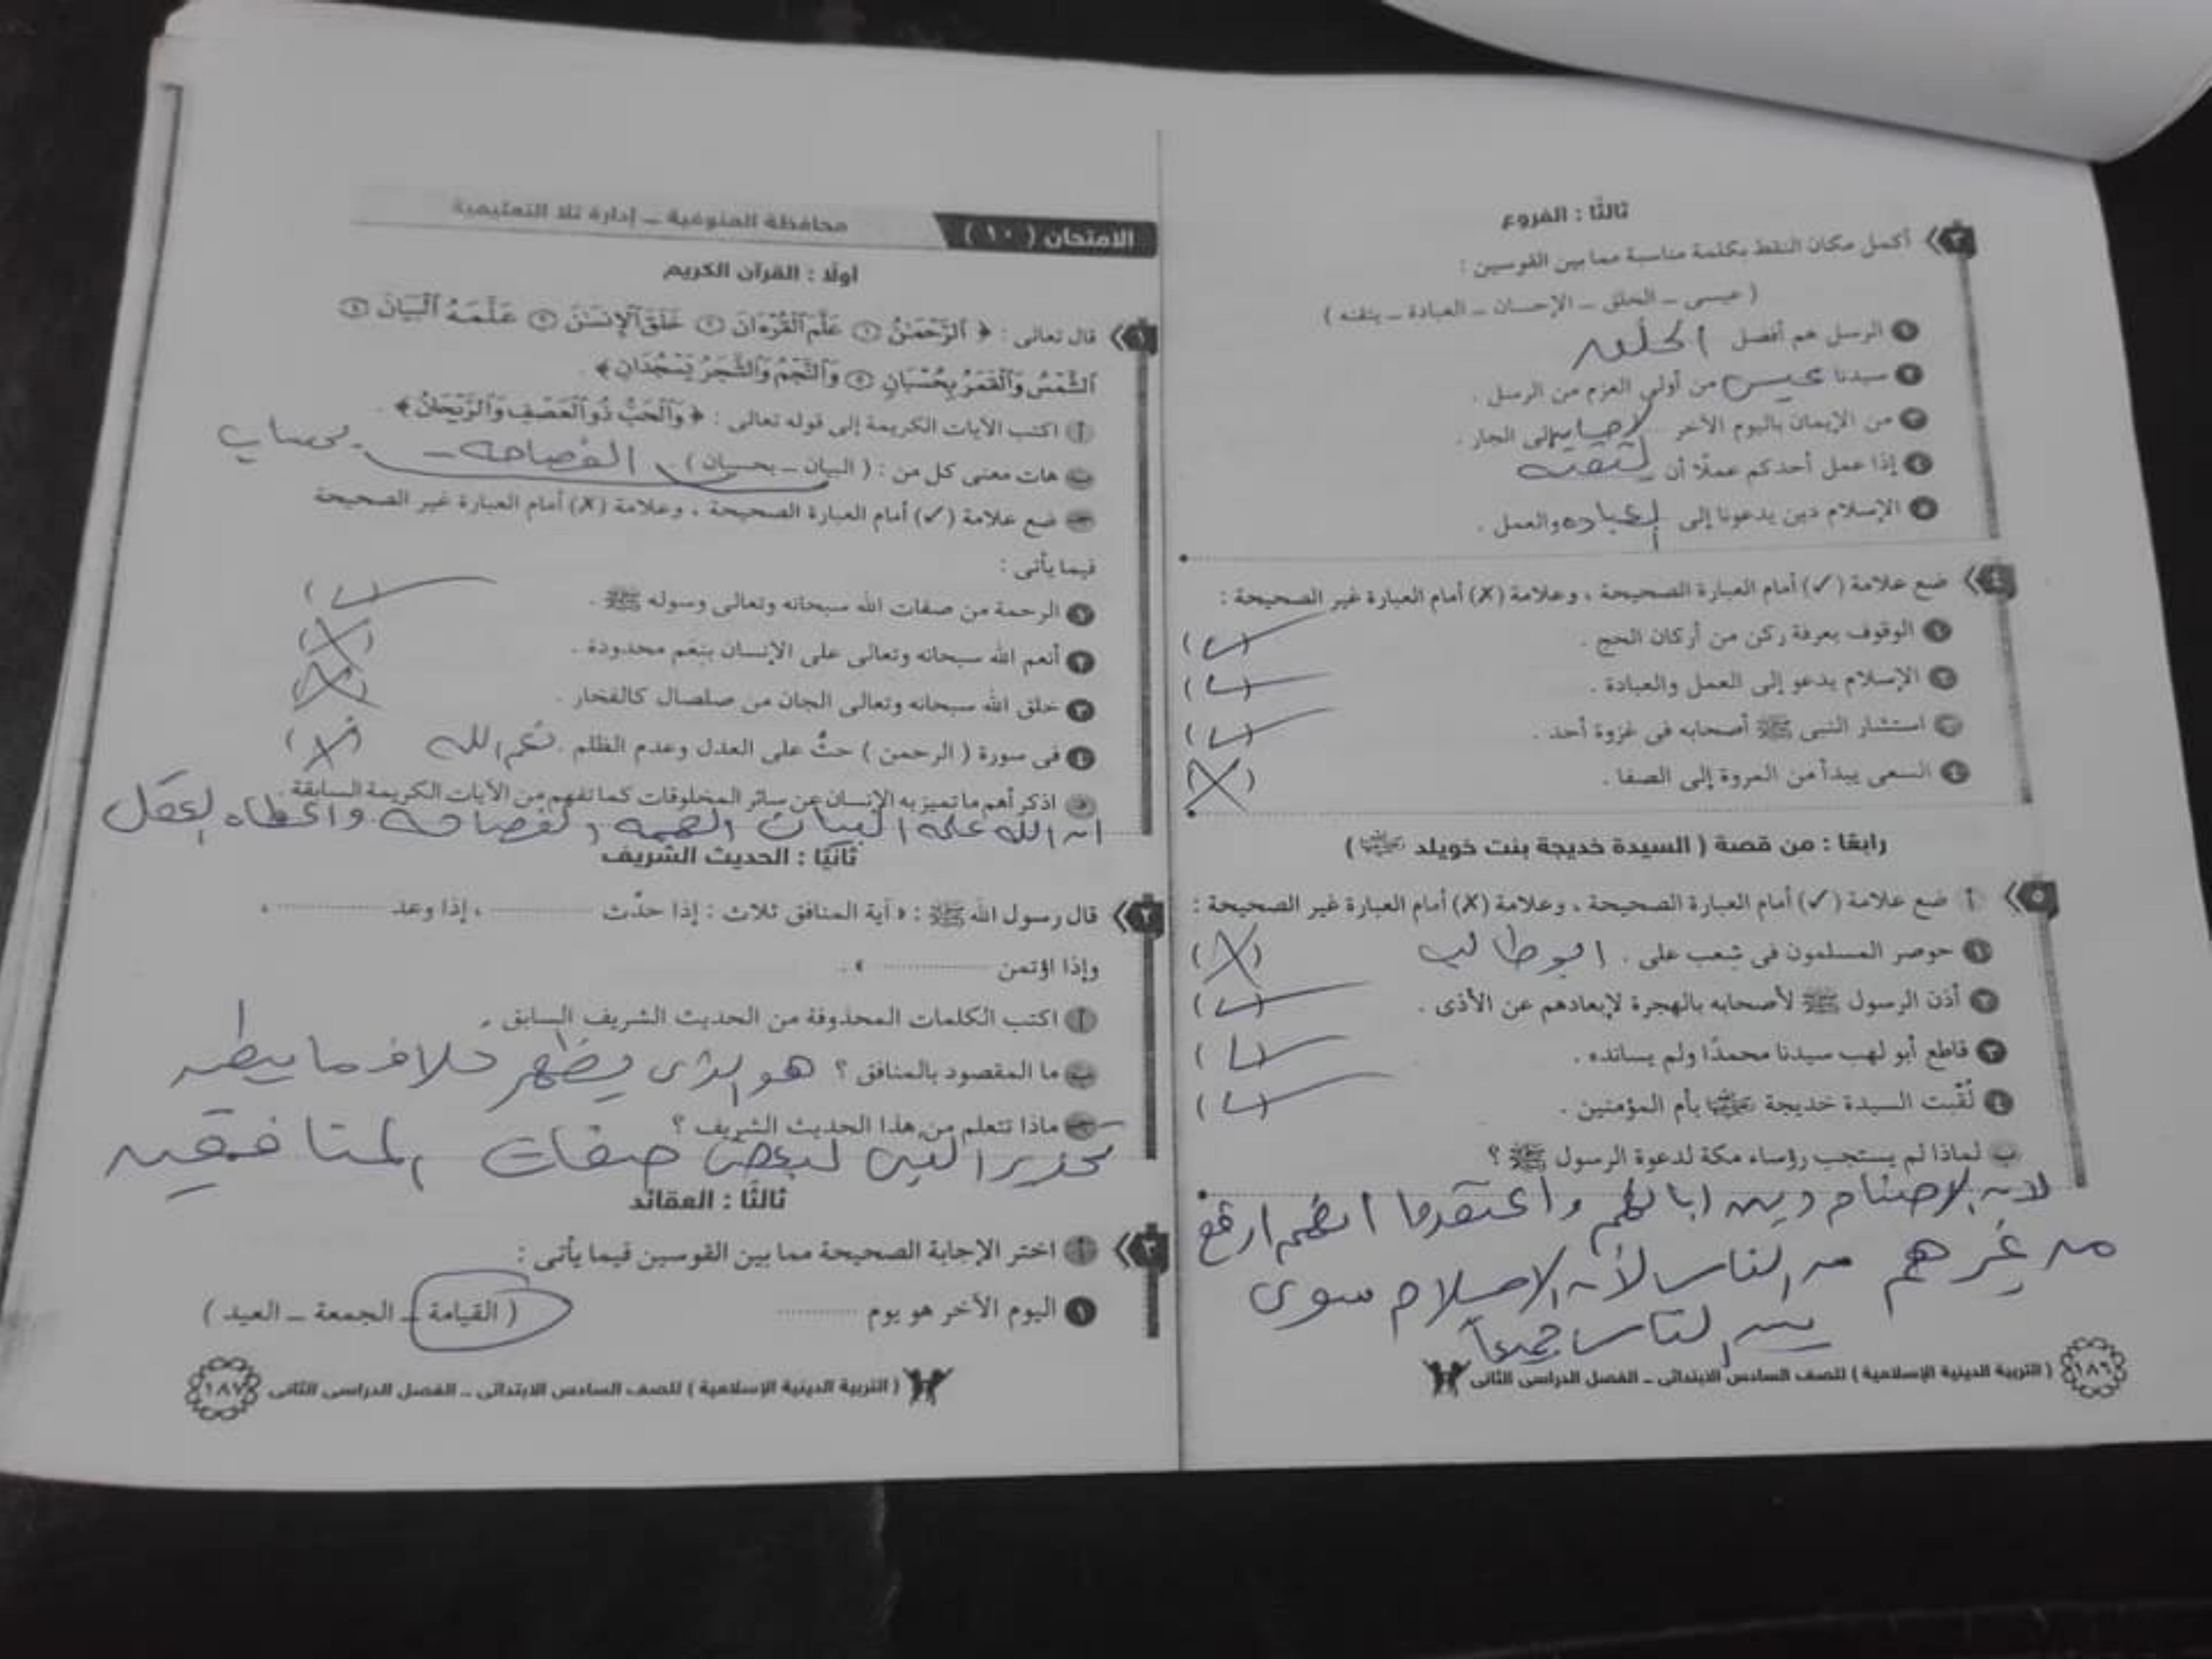 ثالثًا : الفروع
٣ أكمل مكان النقط بكلمة مناسبة مما بين القوسين :
( عيسى – الخلق – الإحسان – العبادة – يتقنه )
١ الرسل هم أفضل الخلق
٢ سيدنا عيسى من أولي العزم من الرسل .
٣ من الإيمان باليوم الآخر إلى الجار .
٤ إذا عمل أحدكم عملًا أن يتقنه
٥ الإسلام دين يدعونا إلى العباده والعمل .
٤ ضع علامة (✓) أمام العبارة الصحيحة ، وعلامة (✗) أمام العبارة غير الصحيحة :
١ الوقوف بعرفة ركن من أركان الحج . (✓)
٢ الإسلام يدعو إلى العمل والعبادة . (✓)
٣ استشار النبى ﷺ أصحابه فى غزوة أحد . (✓)
٤ السعى يبدأ من المروة إلى الصفا . (✗)
رابعًا : من قصة ( السيدة خديجة بنت خويلد رضي الله عنها )
٥ أ ضع علامة (✓) أمام العبارة الصحيحة ، وعلامة (✗) أمام العبارة غير الصحيحة :
١ حوصر المسلمون فى شعب على . ابو طالب (✗)
٢ أذن الرسول ﷺ لأصحابه بالهجرة لإبعادهم عن الأذى . (✓)
٣ قاطع أبو لهب سيدنا محمدًا ولم يسانده . (✓)
٤ لُقبت السيدة خديجة رضي الله عنها بأم المؤمنين . (✓)
ب لماذا لم يستجب رؤساء مكة لدعوة الرسول ﷺ ؟
لان الاصنام دين ابائهم واعتقدوا انهم ارفع
من غيرهم من الناس لأن الاسلام سوى
بين الناس جميعاً
١٨٦ ( التربية الدينية الإسلامية ) للصف السادس الابتدائى – الفصل الدراسى الثانى
الامتحان ( ١٠ ) محافظة المنوفية – إدارة تلا التعليمية
أولًا : القرآن الكريم
١ قال تعالى : ﴿ ٱلرَّحْمَٰنُ ١ عَلَّمَ ٱلْقُرْءَانَ ٢ خَلَقَ ٱلْإِنسَٰنَ ٣ عَلَّمَهُ ٱلْبَيَانَ ٤
ٱلشَّمْسُ وَٱلْقَمَرُ بِحُسْبَانٍ ٥ وَٱلنَّجْمُ وَٱلشَّجَرُ يَسْجُدَانِ ﴾ .
أ اكتب الآيات الكريمة إلى قوله تعالى : ﴿ وَٱلْحَبُّ ذُو ٱلْعَصْفِ وَٱلرَّيْحَانُ ﴾ .
ب هات معنى كل من : ( البيان – بحسبان ) الفصاحه – بحساب
ج ضع علامة (✓) أمام العبارة الصحيحة ، وعلامة (✗) أمام العبارة غير الصحيحة
فيما يأتى :
١ الرحمة من صفات الله سبحانه وتعالى وسوله ﷺ . (✓)
٢ أنعم الله سبحانه وتعالى على الإنسان بنعم محدودة . (✗)
٣ خلق الله سبحانه وتعالى الجان من صلصال كالفخار . (✗)
٤ فى سورة ( الرحمن ) حثٌ على العدل وعدم الظلم . نعم الله (✗)
د اذكر أهم ما تميز به الإنسان عن سائر المخلوقات كما تفهم من الآيات الكريمة السابقة .
ان الله علمه البيان الفصاحه واعطاه العقل
ثانيًا : الحديث الشريف
٢ قال رسول الله ﷺ : « آية المنافق ثلاث : إذا حدَّث .............. ، إذا وعد .............. ،
وإذا اؤتمن .............. » .
أ اكتب الكلمات المحذوفة من الحديث الشريف السابق .
ب ما المقصود بالمنافق ؟ هو الذى يظهر خلاف ما يبطن
ج ماذا تتعلم من هذا الحديث الشريف ؟
تحذير النبى لبعض صفات المنافقين
ثالثًا : العقائد
٣ أ اختر الإجابة الصحيحة مما بين القوسين فيما يأتى :
١ اليوم الآخر هو يوم .......... ( القيامة – الجمعة – العيد )
( التربية الدينية الإسلامية ) للصف السادس الابتدائى – الفصل الدراسى الثانى ١٨٧